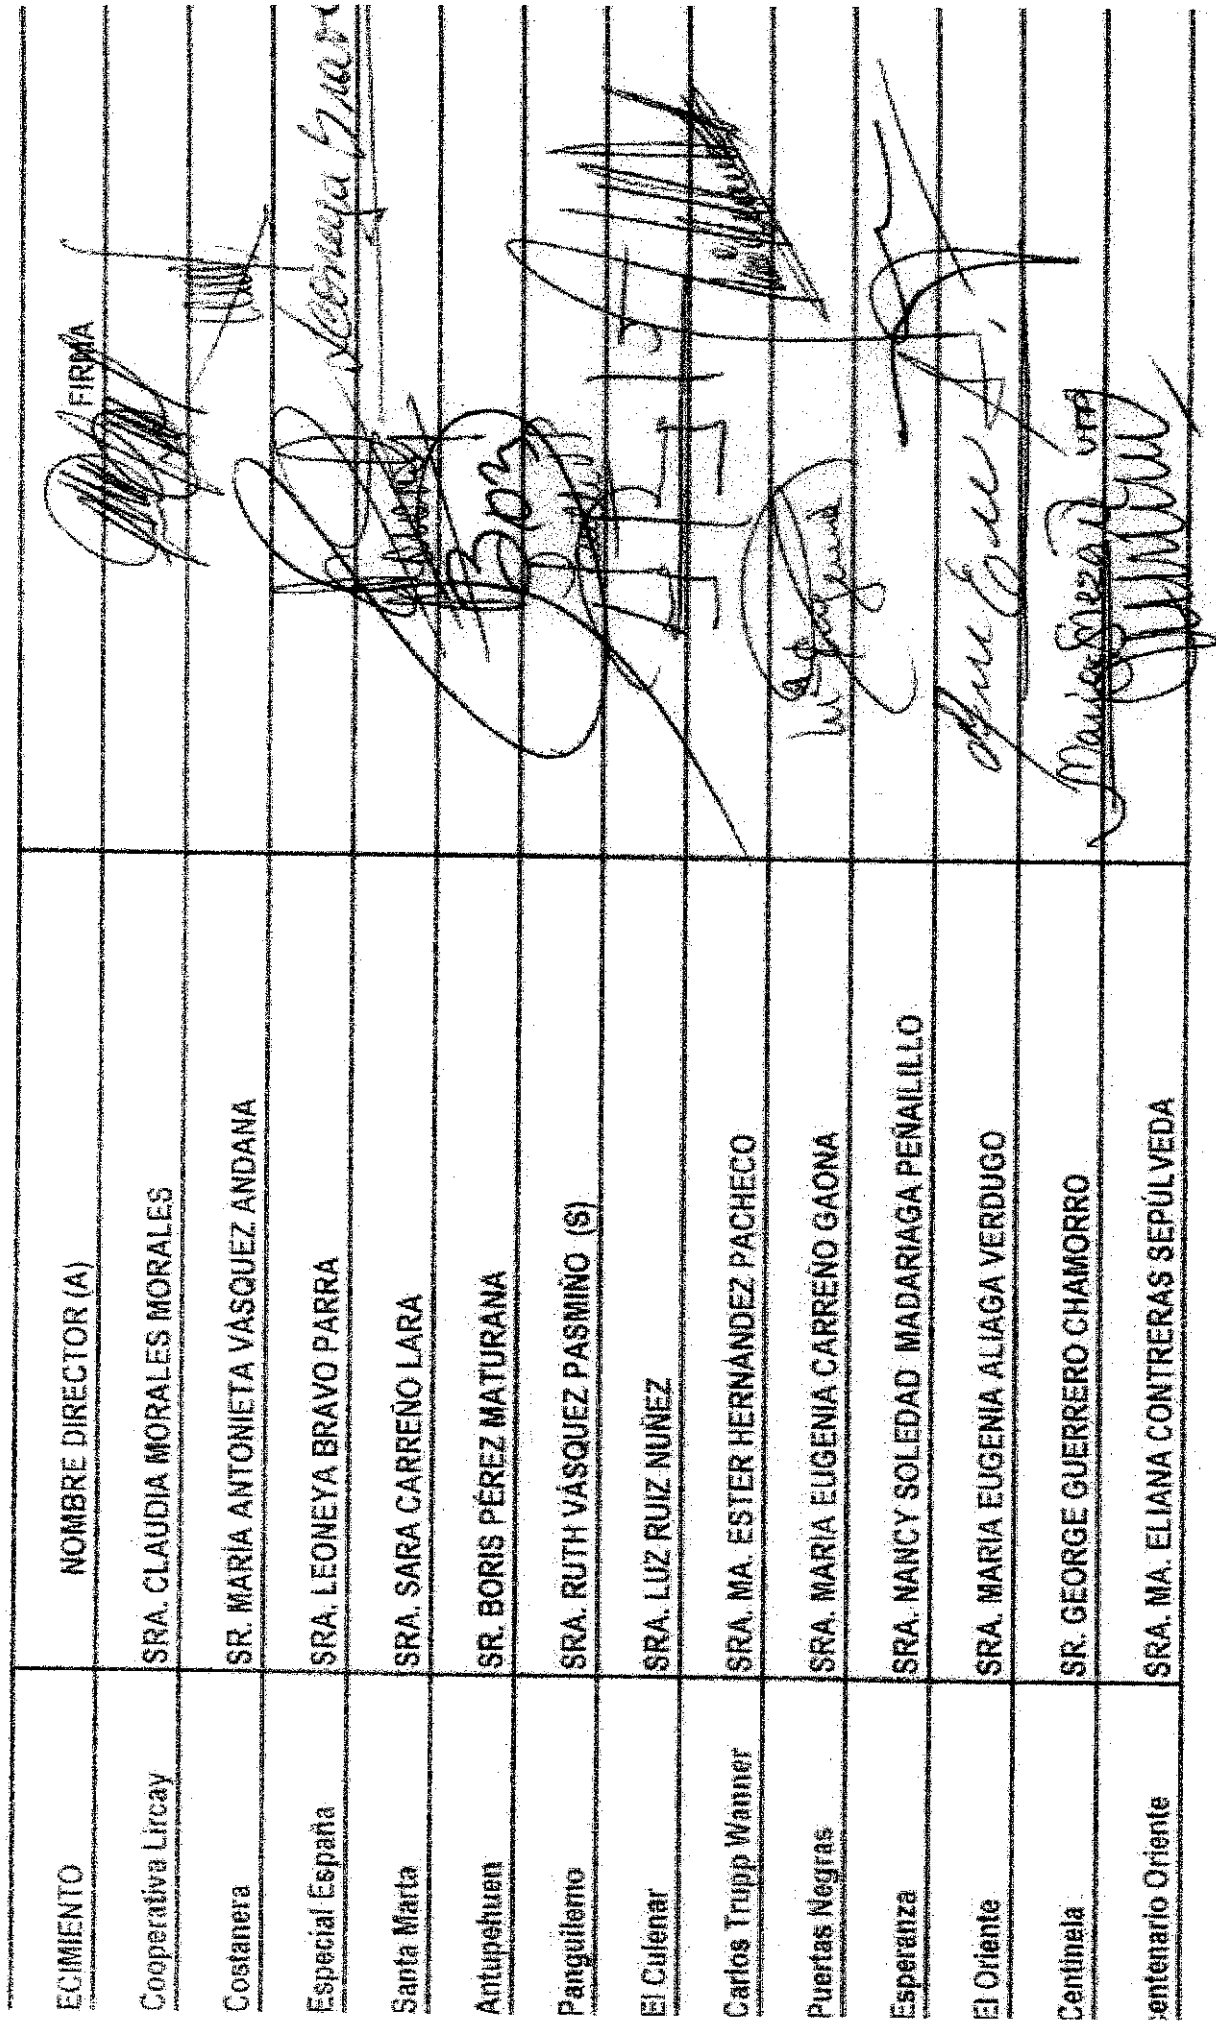 ECIMIENTO NOMBRE DIRECTOR (A) FIRMA
Cooperativa Lircay SRA. CLAUDIA MORALES MORALES
Costanera SR. MARÍA ANTONIETA VÁSQUEZ ANDANA
Especial España SRA. LEONEYA BRAVO PARRA Leoneya Bravo
Santa Marta SRA. SARA CARREÑO LARA
Antupehuen SR. BORIS PÉREZ MATURANA
Panguilemo SRA. RUTH VÁSQUEZ PASMIÑO (S)
El Culenar SRA. LUZ RUIZ NUÑEZ
Carlos Trupp Wanner SRA. MA. ESTER HERNÁNDEZ PACHECO
Puertas Negras SRA. MARÍA EUGENIA CARREÑO GAONA
Esperanza SRA. NANCY SOLEDAD MADARIAGA PEÑAILILLO
El Oriente SRA. MARIA EUGENIA ALIAGA VERDUGO
Centinela SR. GEORGE GUERRERO CHAMORRO Maria Meza UTP
entenario Oriente SRA. MA. ELIANA CONTRERAS SEPÚLVEDA